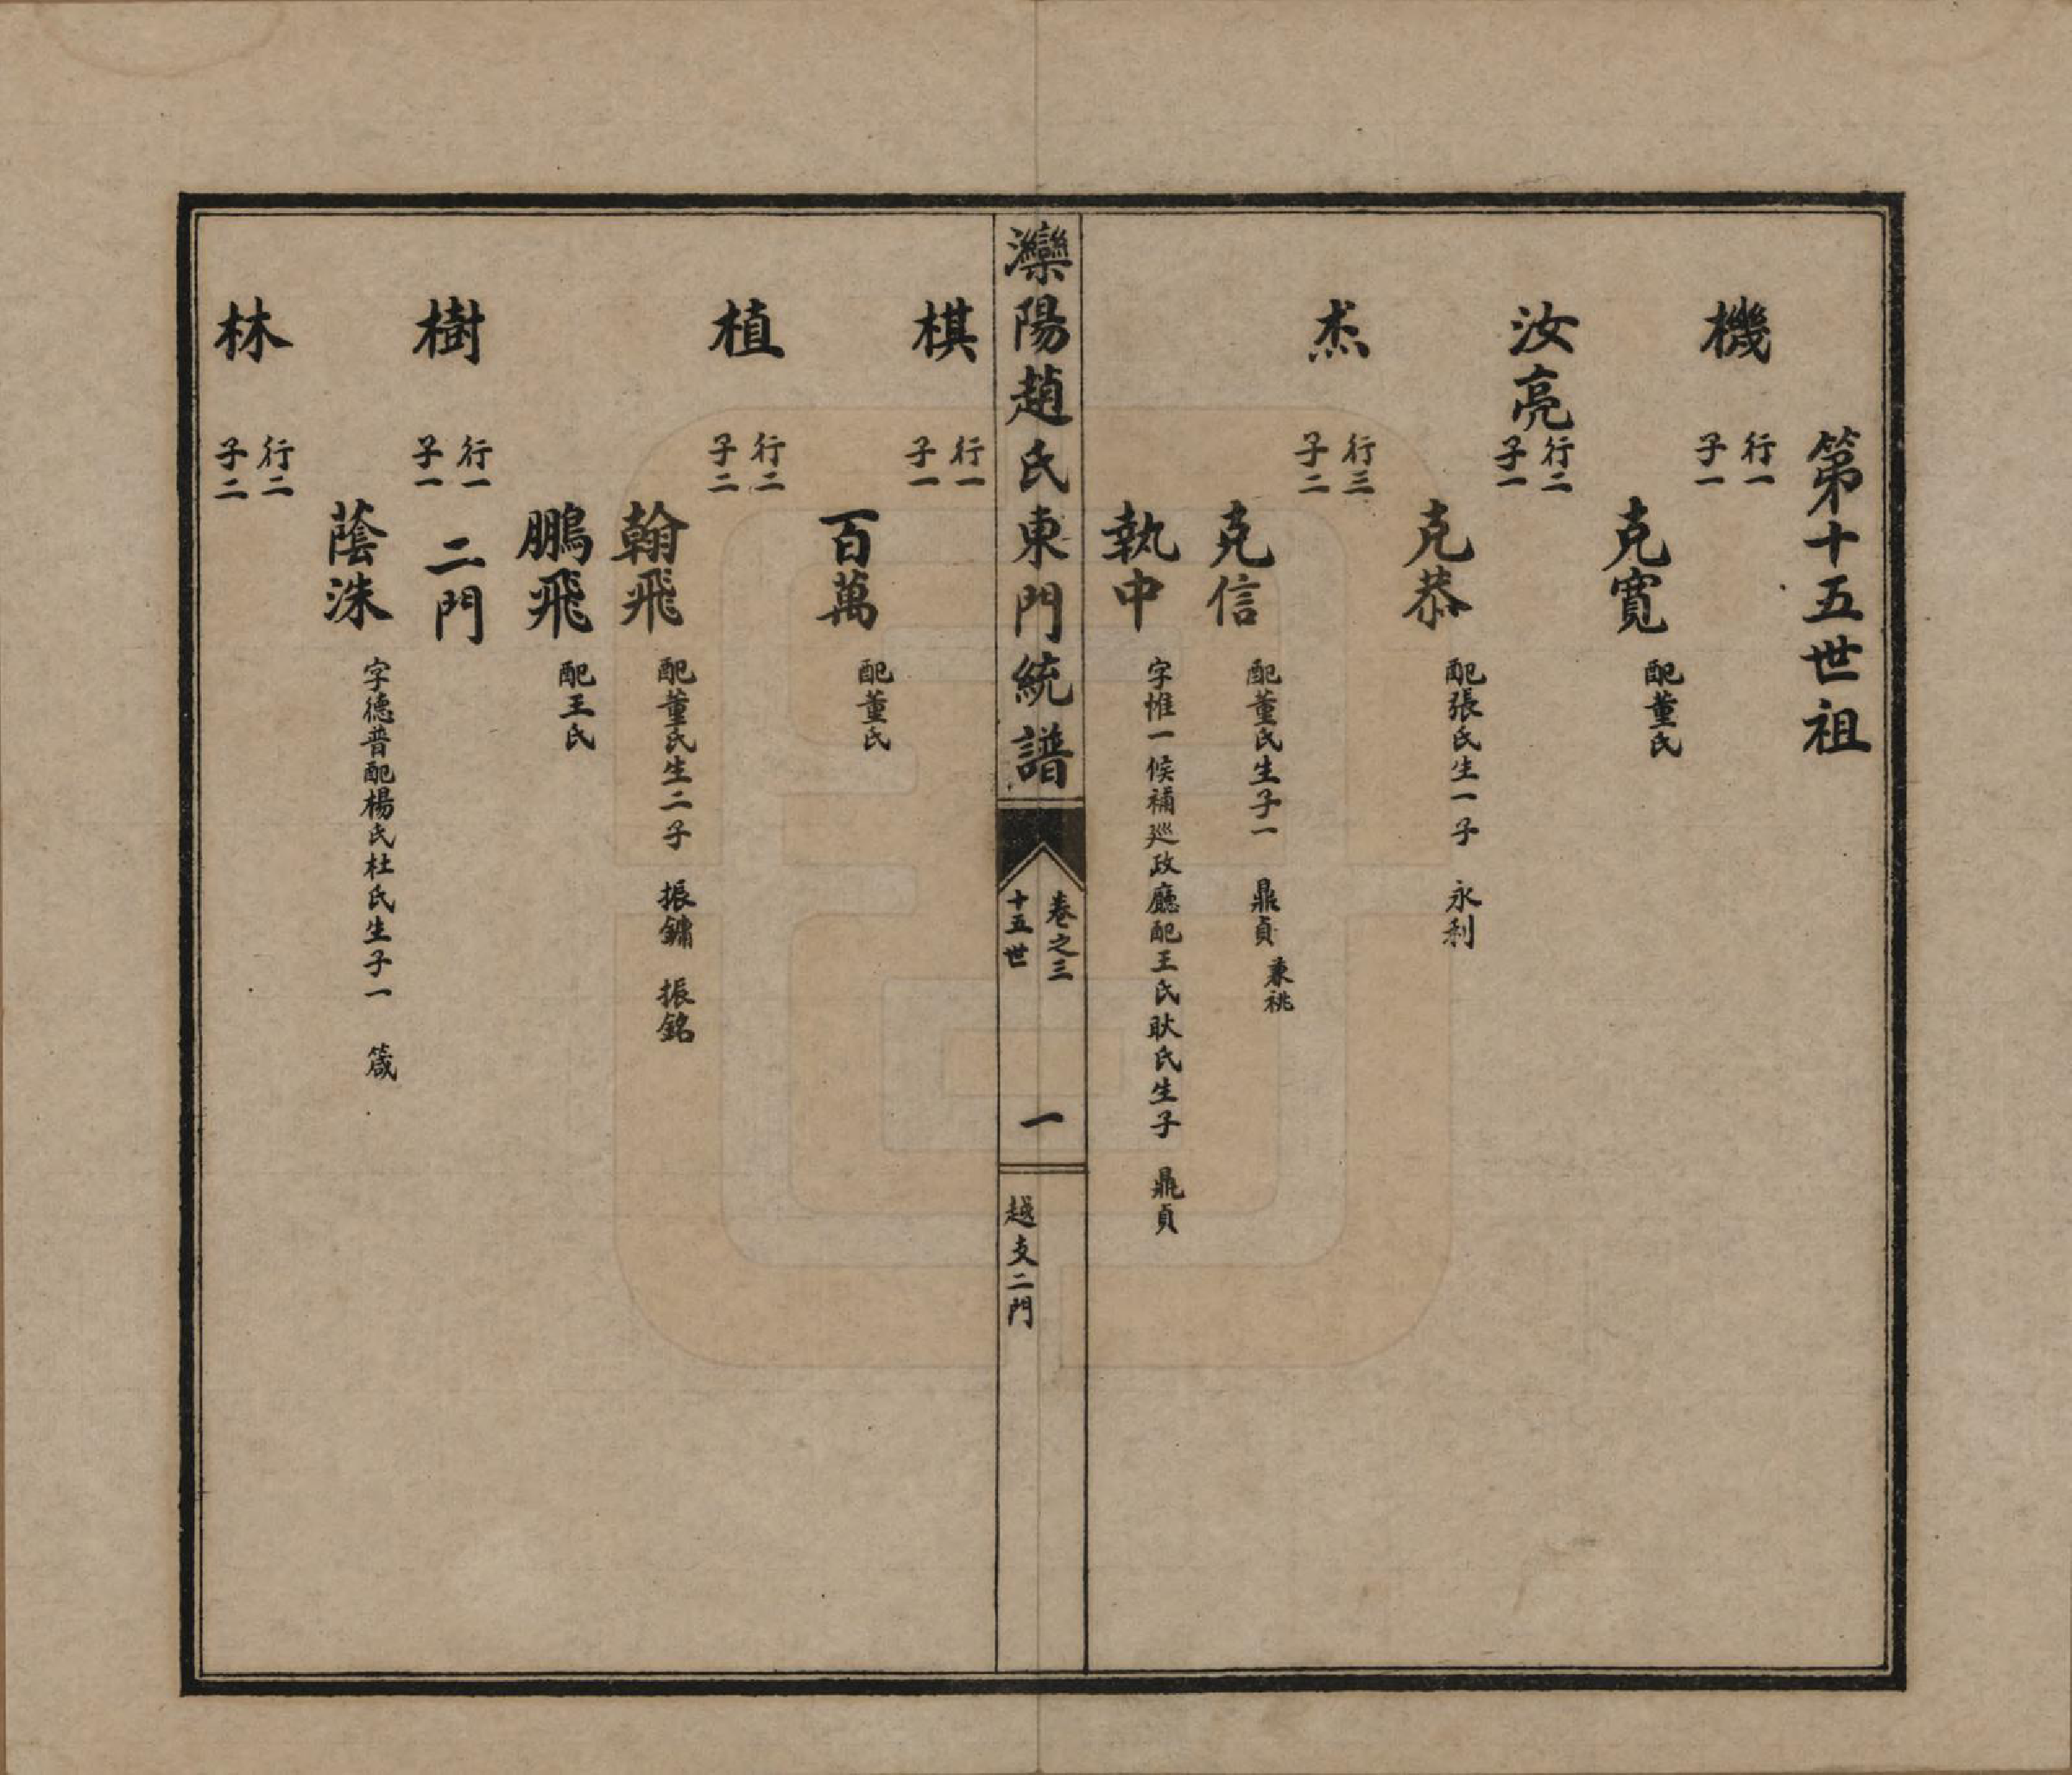 第十五世祖
機 行一 子一
克寬 配董氏
汝亮 行二 子一
克恭 配張氏生一子 永利
杰 行三 子二
克信 配董氏生子一 鼎貞 兼祧
執中 字惟一候補巡政廳配王氏耿氏生子 鼎貞
灤陽趙氏東門統譜
卷之三
十五世
一
越支二門
棋 行一 子一
百萬 配董氏
植 行二 子二
翰飛 配董氏生二子 振鏞 振銘
鵬飛 配王氏
二門
樹 行一 子一
蔭洙 字德普配楊氏杜氏生子一 箴
林 行二 子二